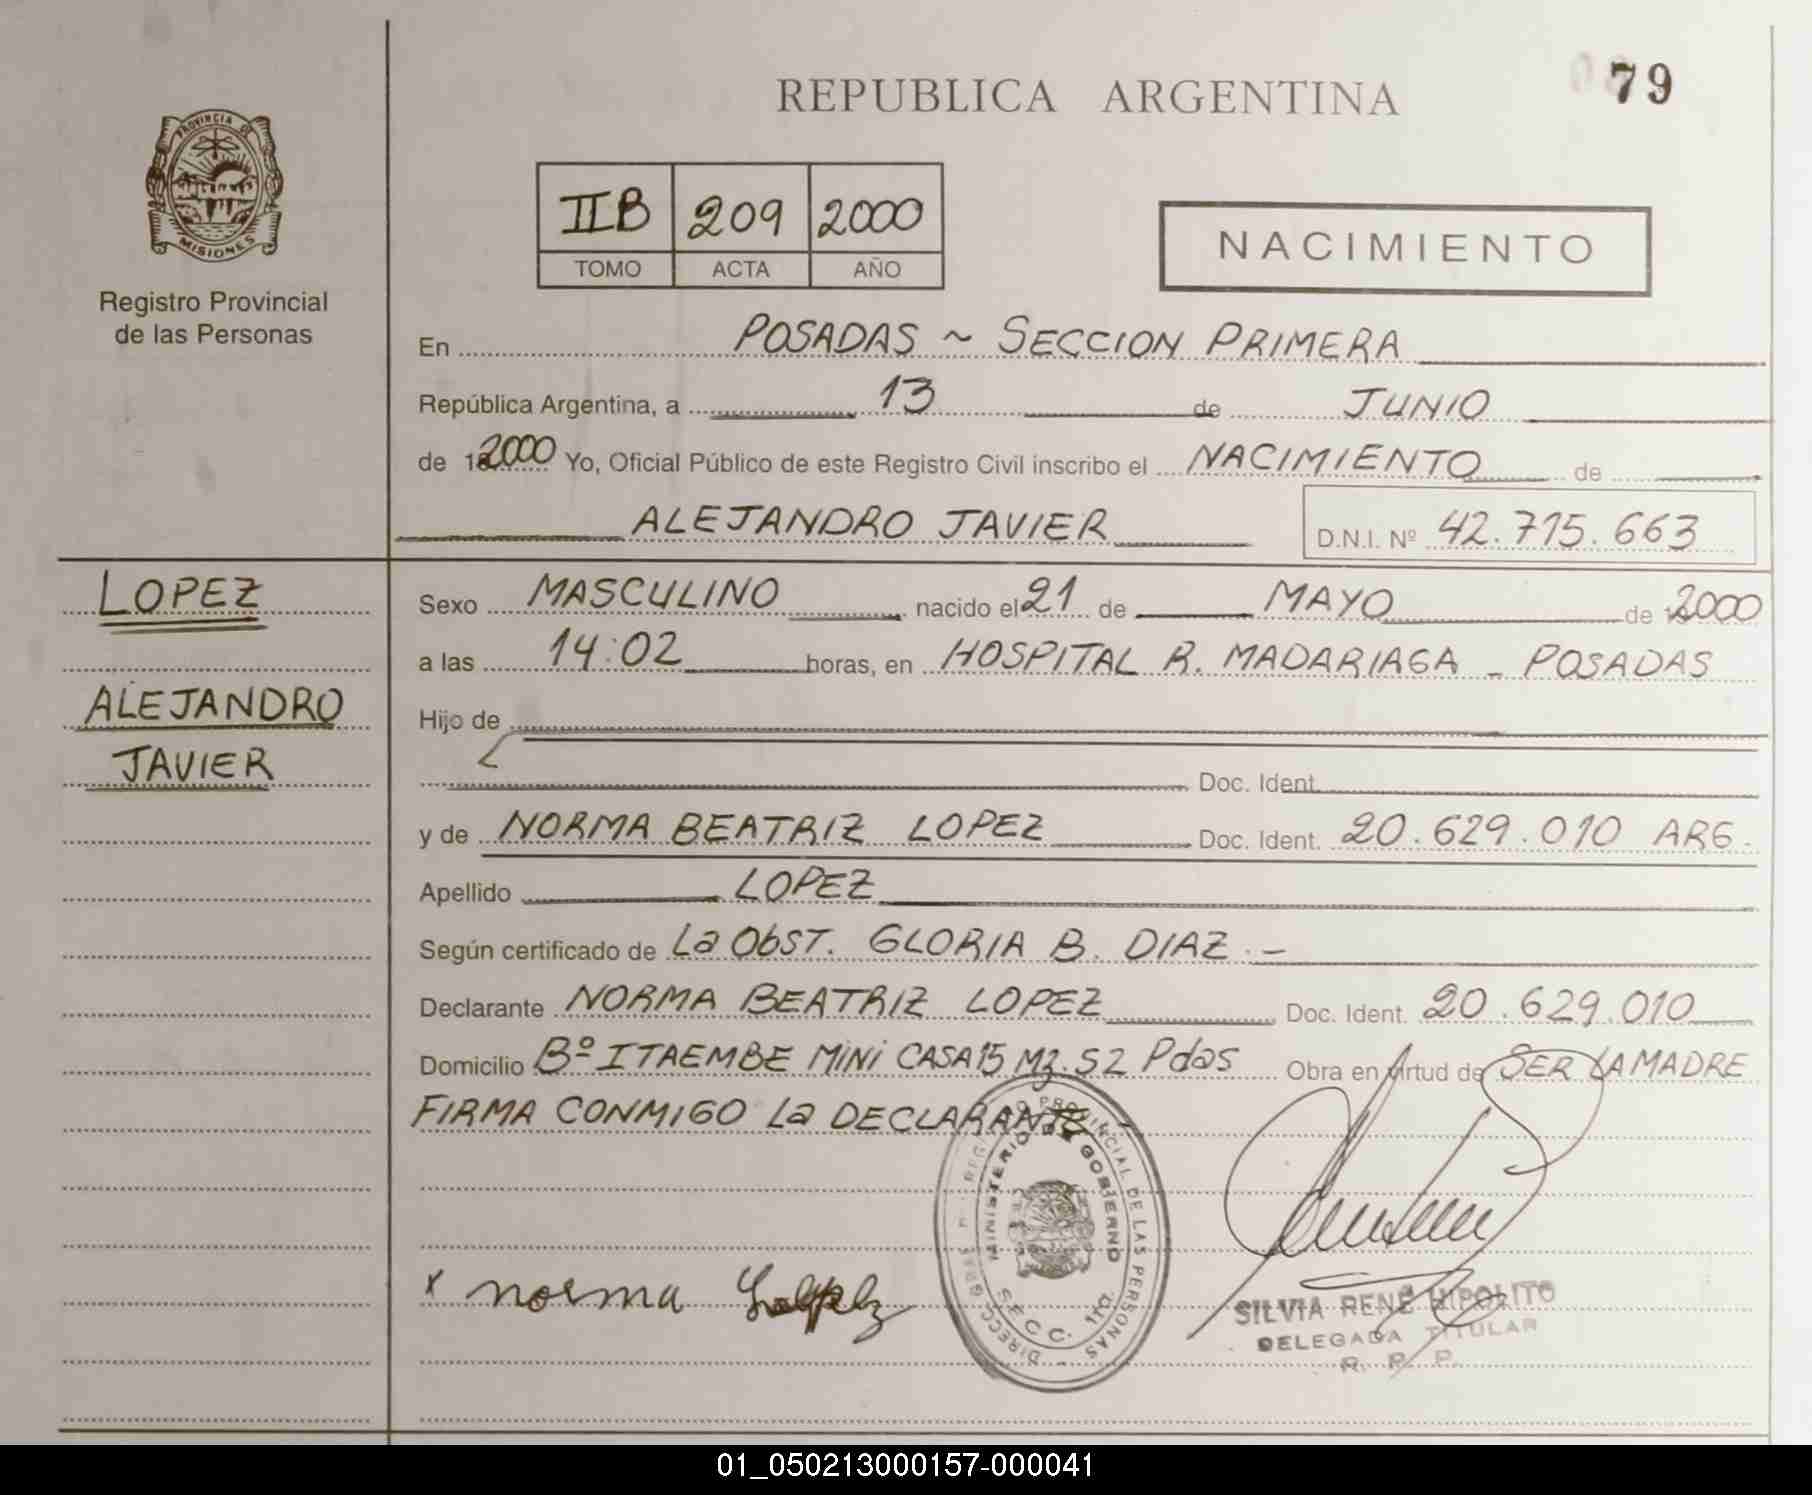 REPUBLICA ARGENTINA
79
PROVINCIA DE MISIONES
Registro Provincial
de las Personas
IIB 209 2000
TOMO ACTA AÑO
NACIMIENTO
En POSADAS ~ SECCION PRIMERA
República Argentina, a 13 de JUNIO
de 2000 Yo, Oficial Público de este Registro Civil inscribo el NACIMIENTO de
ALEJANDRO JAVIER D.N.I. Nº 42.715.663
LOPEZ
ALEJANDRO
JAVIER
Sexo MASCULINO nacido el 21 de MAYO de 2000
a las 14:02 horas, en HOSPITAL R. MADARIAGA - POSADAS
Hijo de
Doc. Ident.
y de NORMA BEATRIZ LOPEZ Doc. Ident. 20.629.010 ARG.
Apellido LOPEZ
Según certificado de La ObST. GLORIA B. DIAZ.-
Declarante NORMA BEATRIZ LOPEZ Doc. Ident. 20.629.010
Domicilio Bº ITAEMBE MINI CASA 15 Mz. 52 Pdas Obra en virtud de SER LA MADRE
FIRMA CONMIGO La DECLARANTE -
x norma
MINISTERIO DE GOBIERNO
PROVINCIAL DE LAS PERSONAS
SECC. 1ra.
SILVIA RENE HIPOLITO
DELEGADA TITULAR
R. P. P.
01_050213000157-000041